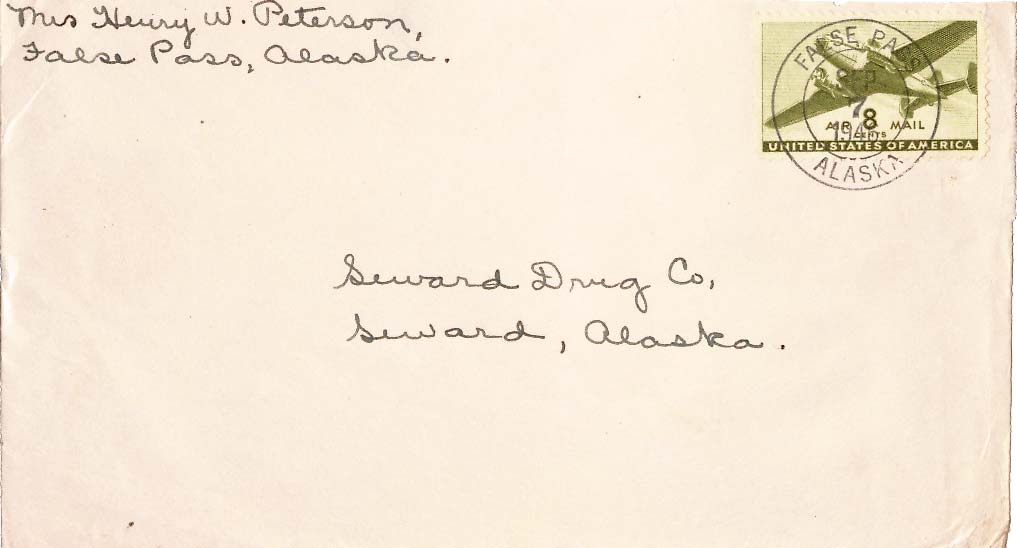 Mrs Henry W. Peterson,
False Pass, Alaska.
FALSE PASS
SEP
7
ALASKA
AIR 8 MAIL
CENTS
UNITED STATES OF AMERICA
Seward Drug Co,
Seward, Alaska.